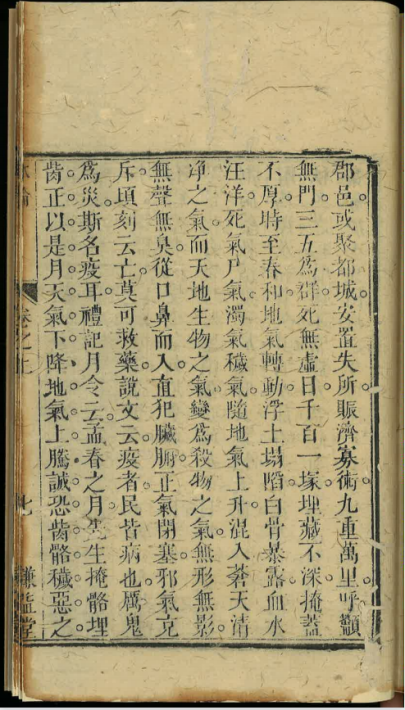 郡邑或聚都城安置失所賑濟寡術九重萬里呼籲
無門三五為群死無虛日千百一塚埋藏不深掩蓋
不厚時至春和地氣轉動浮土塌陷白骨暴露血水
汪洋死氣尸氣濁氣穢氣隨地氣上升混入蒼天清
净之氣而天地生物之氣變為殺物之氣無形無影
無聲無臭從口鼻而入直犯臟腑正氣閉塞邪氣充
斥頃刻云亡莫可救藥說文云疫者民皆病也厲鬼
為災斯名疫耳禮記月令云孟春之月先生掩骼埋
胔正以是月天氣下降地氣上騰誠恐胔骼穢惡之
卷之上
七 謙益堂